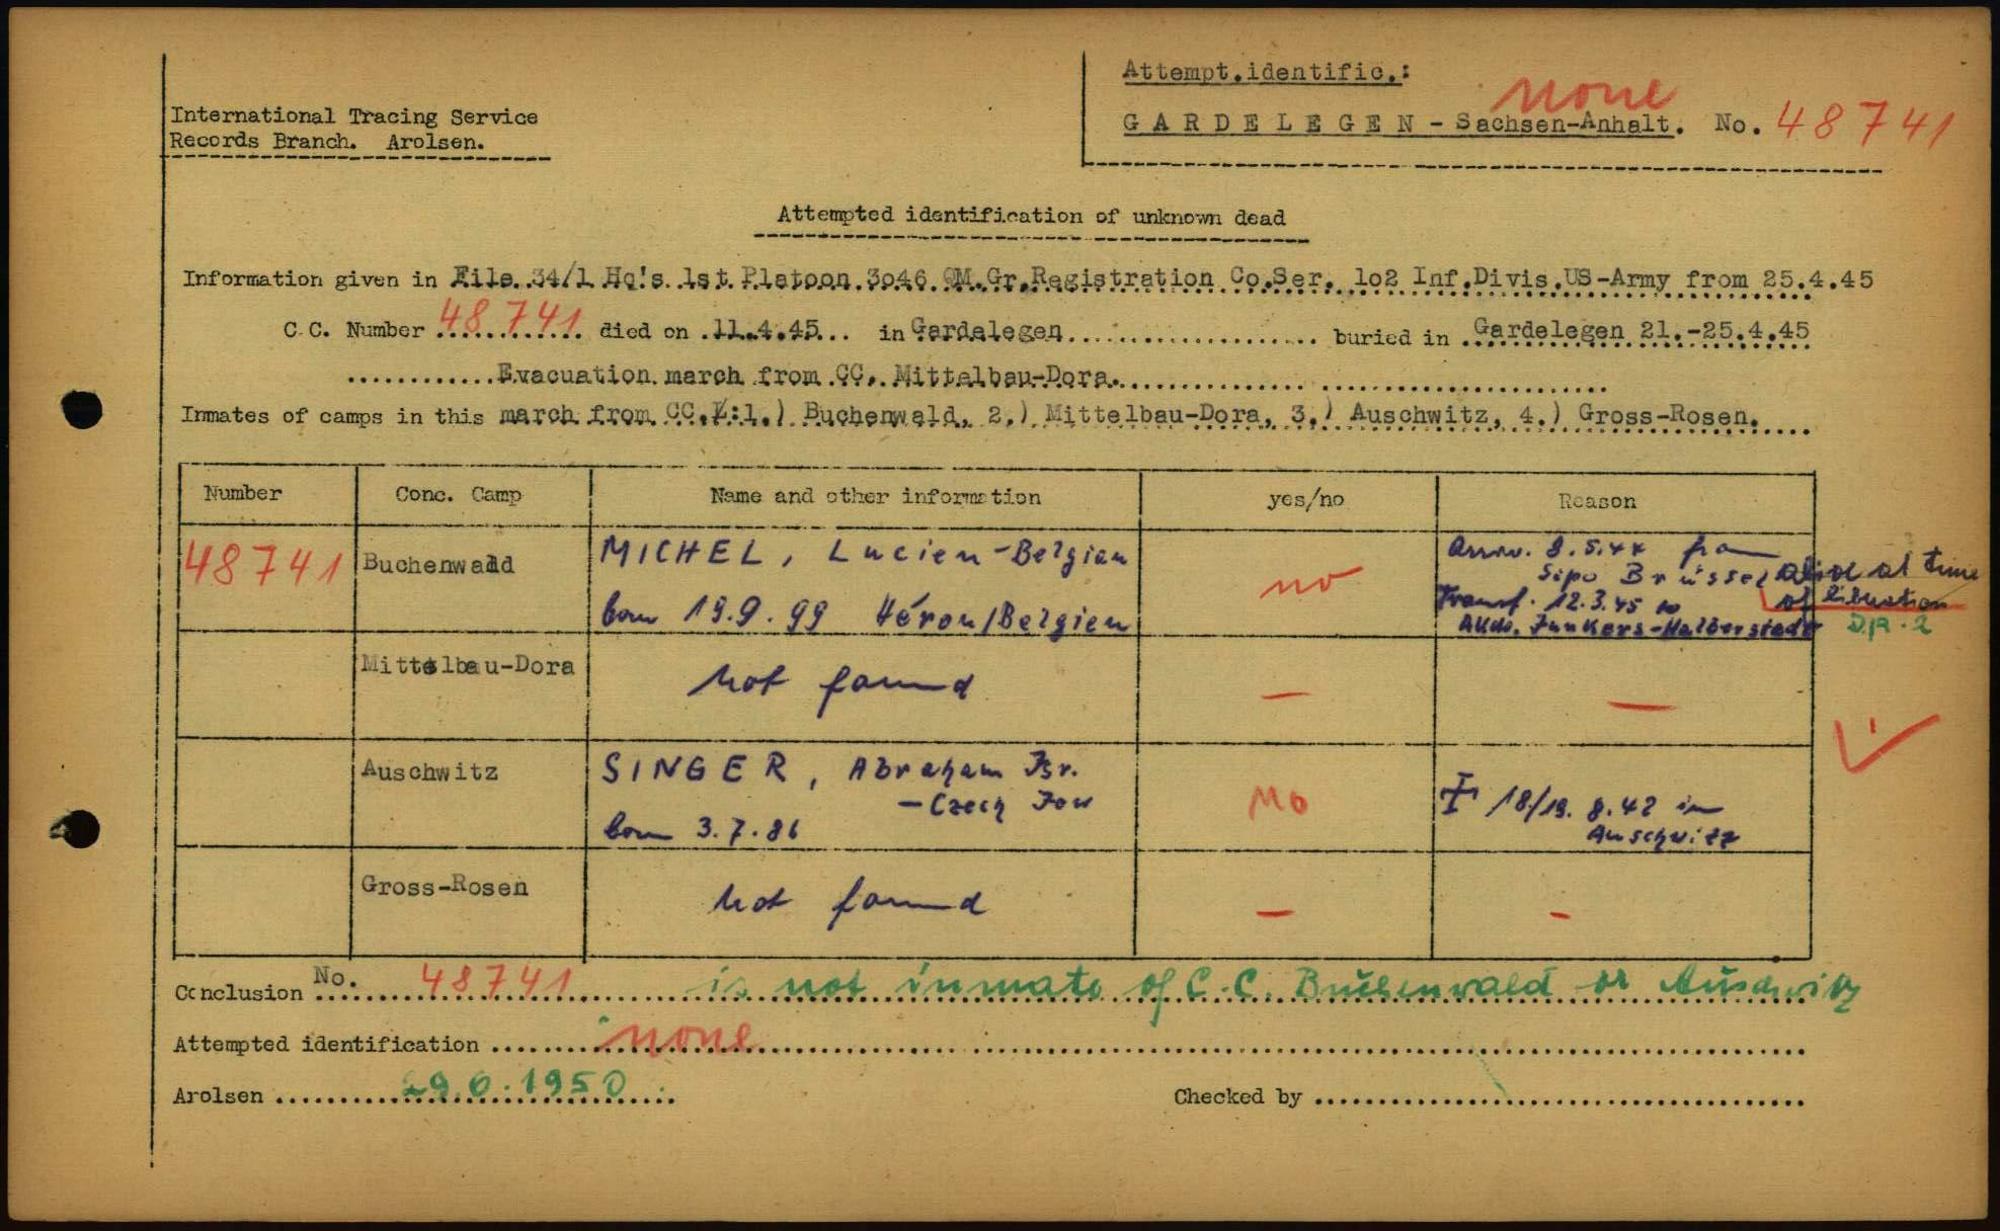 Attempt.identific.:
none
International Tracing Service
Records Branch. Arolsen.
GARDELEGEN - Sachsen-Anhalt. No. 48741
Attempted identification of unknown dead
Information given in File 34/1 Hq's 1st Platoon 3o46 QM.Gr.Registration Co.Ser. 1o2 Inf.Divis.US-Army from 25.4.45
C.C. Number 48741 died on 11.4.45 in Gardelegen buried in Gardelegen 21.-25.4.45
Evacuation march from CC. Mittelbau-Dora.
Inmates of camps in this march from CC.:1.) Buchenwald, 2.) Mittelbau-Dora, 3.) Auschwitz, 4.) Gross-Rosen.
Number Conc. Camp Name and other information yes/no Reason
48741 Buchenwald MICHEL, Lucien - Belgian
born 19.9.99 Héron/Belgien
no
Arriv. 8.5.44 from
Sipo Brüssel
Transf. 12.3.45 to
AKdo. Junkers-Halberstadt
alive at time
of liberation
Mittelbau-Dora not found — —
Auschwitz SINGER, Abraham Isr.
- Czech Jew
born 3.7.86
no
18/19.8.42 in
Auschwitz
Gross-Rosen not found — -
Conclusion No. 48741 is not inmate of C.C. Buchenwald or Auschwitz
Attempted identification none
Arolsen 29.6.1950 Checked by